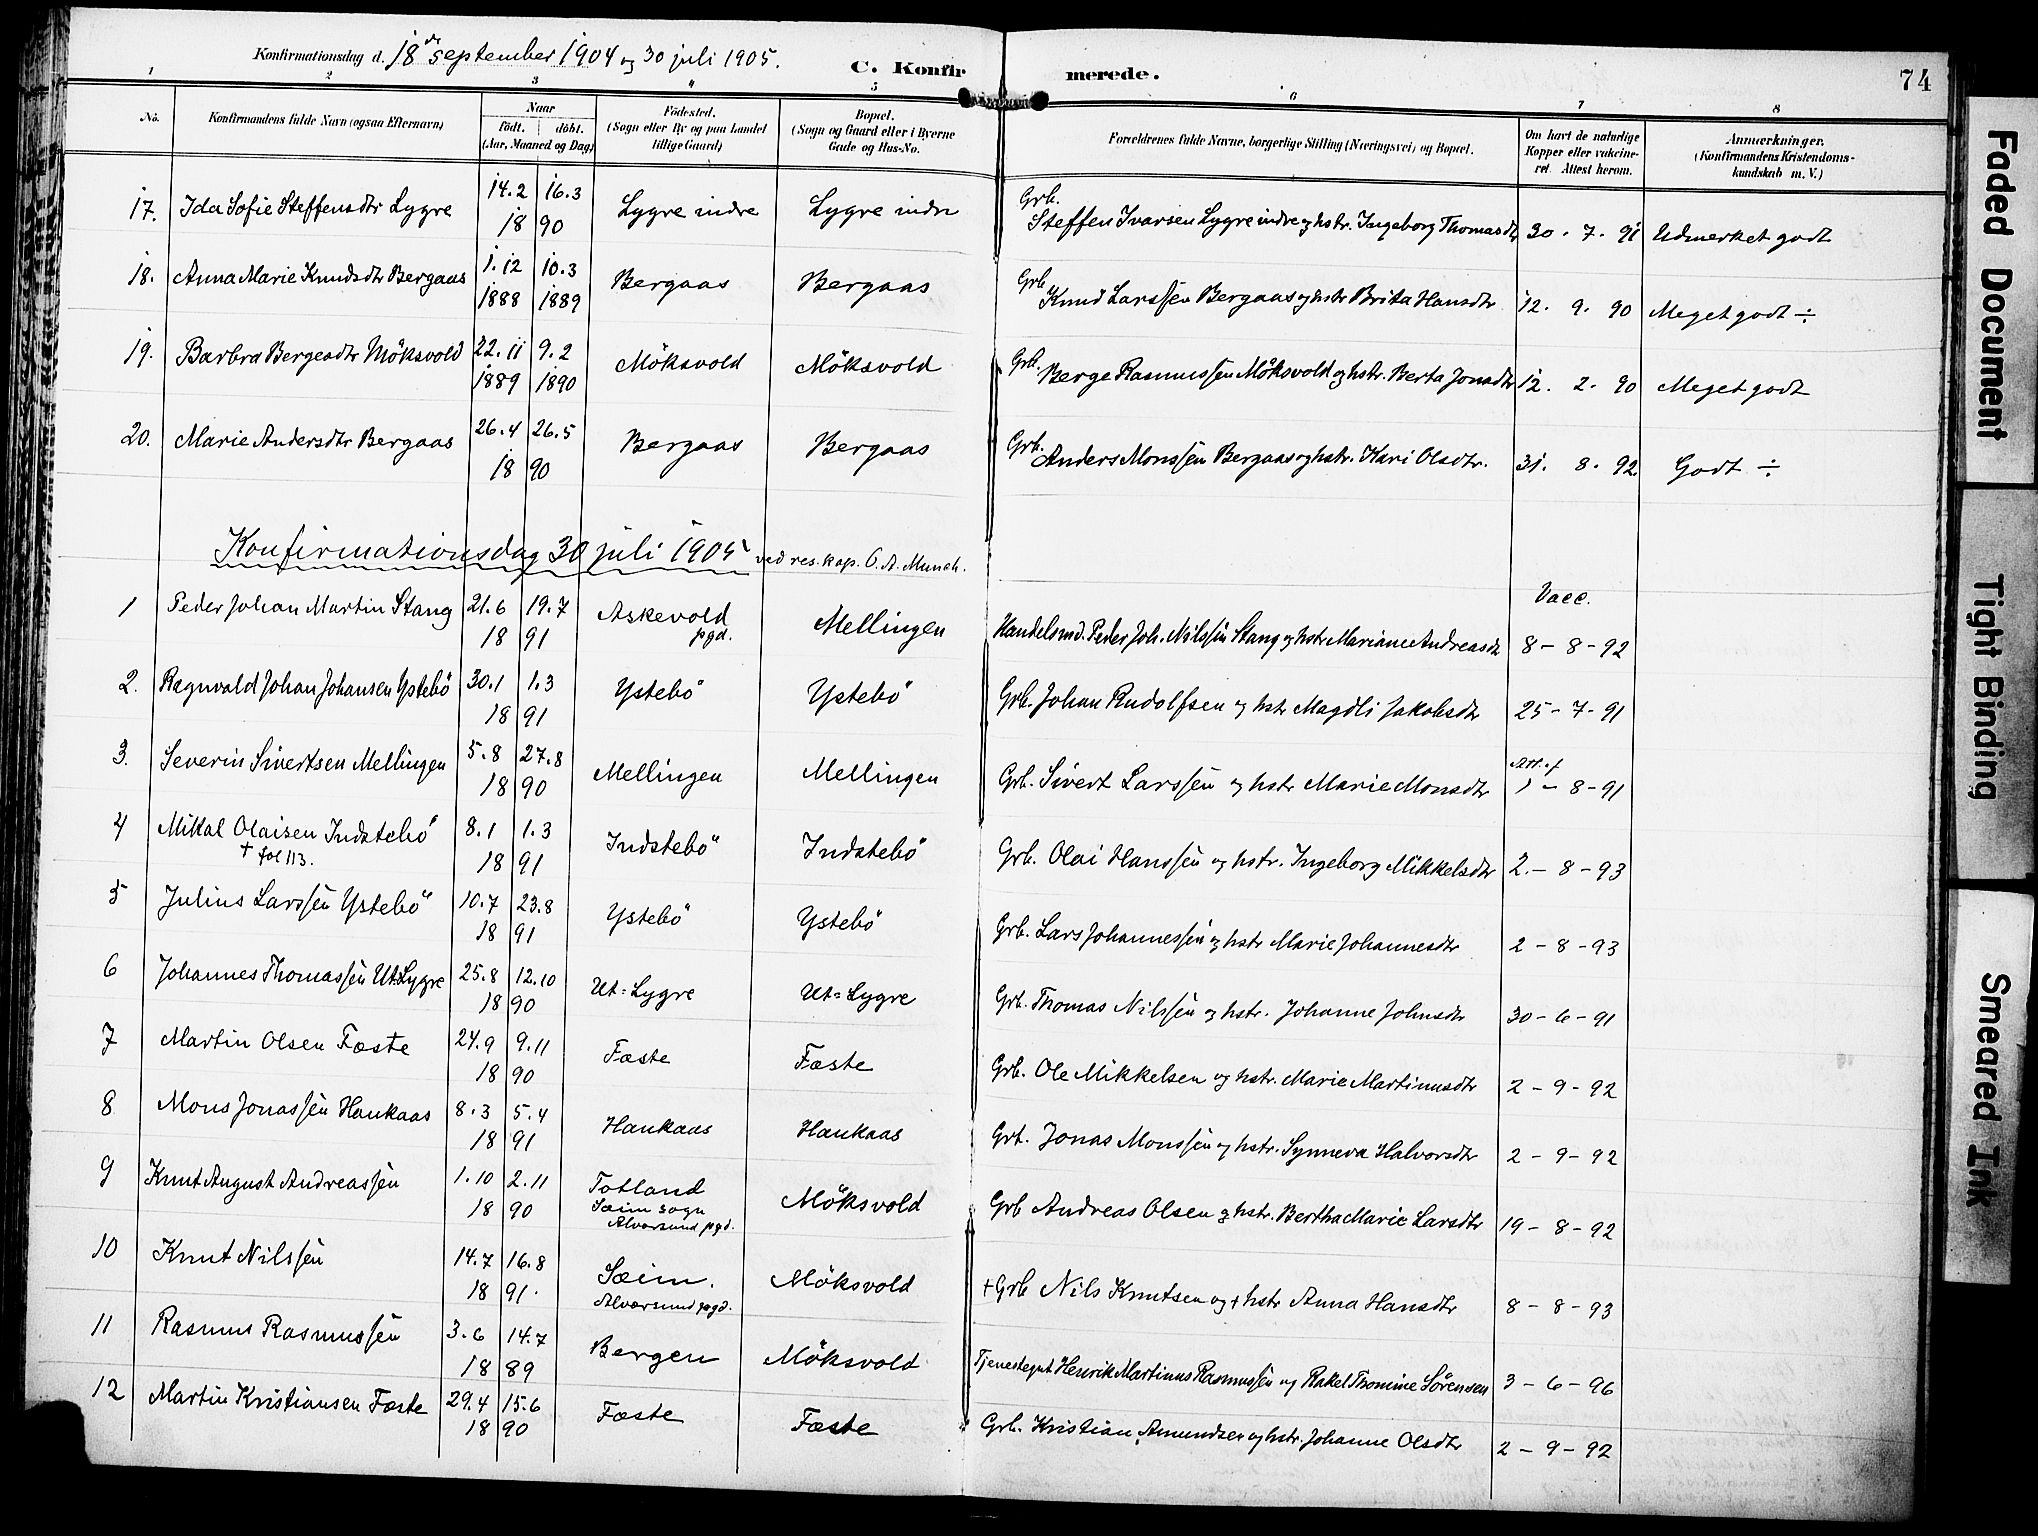 Konfirmationsdag d. 18de september 1904 og 30 juli 1905.
C. Konfirmerede.
74
1 2 3 4 5 6 7 8
No. Konfirmandens fulde Navn (ogsaa Efternavn) Naar født. døbt. (Aar, Maaned og Dag) Fødested. (Sogn eller By og paa Landet tillige Gaard) Bopæl. (Sogn og Gaard eller i Byerne Gade og Hus-No. Forældrenes fulde Navne, borgerlige Stilling (Næringsvei) og Bopæl. Om havt de naturlige Kopper eller vakcineret. Attest herom. Anmærkninger. (Konfirmandens Kristendomskundskab m. V.)
17. Ida Sofie Steffensdtr Lygre 14.2 16.3 1890 Lygre indre Lygre indre Grb. Steffen Ivarsen Lygre indre og hstr. Ingeborg Thomasdtr 30 . 7 . 91 Udmerket godt
18. Anna Marie Knudsdtr Bergaas 1.12 1888 10.3 1889 Bergaas Bergaas Grb Knud Larssen Bergaas og hstr Brita Hansdtr 12. 9. 90 Meget godt ÷
19. Barbra Bergesdtr Möksvold 22.11 1889 9.2 1890 Möksvold Möksvold Grb. Berge Rasmussen Möksvold og hstr. Berta Jonsdtr 12. 2. 90 Meget godt
20. Marie Andersdtr Bergaas 26.4 26.5 1890 Bergaas Bergaas Grb. Anders Monssen Bergaas og hstr. Kari Olsdtr. 31. 8. 92. Godt ÷
Konfirmationsdag 30 juli 1905 ved res. kap. O. A. Munch.
Vacc.
1 Peder Johan Martin Stang 21.6 19.7 1891 Askevold pgd. Mellingen Handelsmd. Peder Joh. Nilssen Stang og hstr Mariane Andreasdtr 8 – 8 – 92
2. Ragnvald Johan Johansen Ystebö 30.1 1.3 1891 Ystebö Ystebö Grb. Johan Rudolfsen og hstr Magdli Jakobsdtr 25 – 7 – 91
3. Severin Sivertsen Mellingen 5.8 27.8 1890 Mellingen Mellingen Grb. Sivert Larssen og hstr Marie Monsdtr Att. f 1 – 8 – 91
4 Mikal Olaisen Indstebö 8.1 1.3 1891 Indstebö Indstebö Grb. Olai Hanssen og hstr. Ingeborg Mikkelsdtr 2. – 8 – 93
+ fol 113.
5 Julius Larssen Ystebö 10.7 23.8 1891 Ystebö Ystebö Grb. Lars Johannessen og hstr Marie Johannesdtr 2 – 8 – 93
6 Johannes Thomassen Ut=Lygre 25.8 12.10 1890 Ut=Lygre Ut=Lygre Grb. Thomas Nilssen og hstr. Johanne Johnsdtr 30 – 6 – 91
7 Martin Olsen Fæste 24.9 9.11 1890 Fæste Fæste Grb. Ole Mikkelsen og hstr. Marie Martinusdtr 2 – 9 – 92
8 Mons Jonassen Haukaas 8.3 5.4 1891 Haukaas Haukaas Grb. Jonas Monssen og hstr. Synneva Halvorsdtr 2 – 9 – 92
9 Knut August Andreassen 1.10 2.11 1890 Totland Sæim sogn Alversund pgd. Möksvold Grb Andreas Olsen og hstr. Bertha Marie Larsdtr 19 – 8 – 92
10 Knut Nilssen 14.7 16.8 1891. Sæim. Alversund pgd. Möksvold + Grb Nils Knutsen og + hstr Anna Hansdtr 8 – 8 – 93
11 Rasmus Rasmussen 3.6 14.7 1889 Bergen Möksvold Tjenestegut Henrik Martinus Rasmussen og Rakel Thomine Sörensen 3 – 6 – 96
12 Martin Kristiansen Fæste 29.4 15.6 1890 Fæste Fæste Grb. Kristian Amundsen og hstr. Johanne Olsdtr 2 – 9 – 92
Faded Document
Tight Binding
Smeared Ink